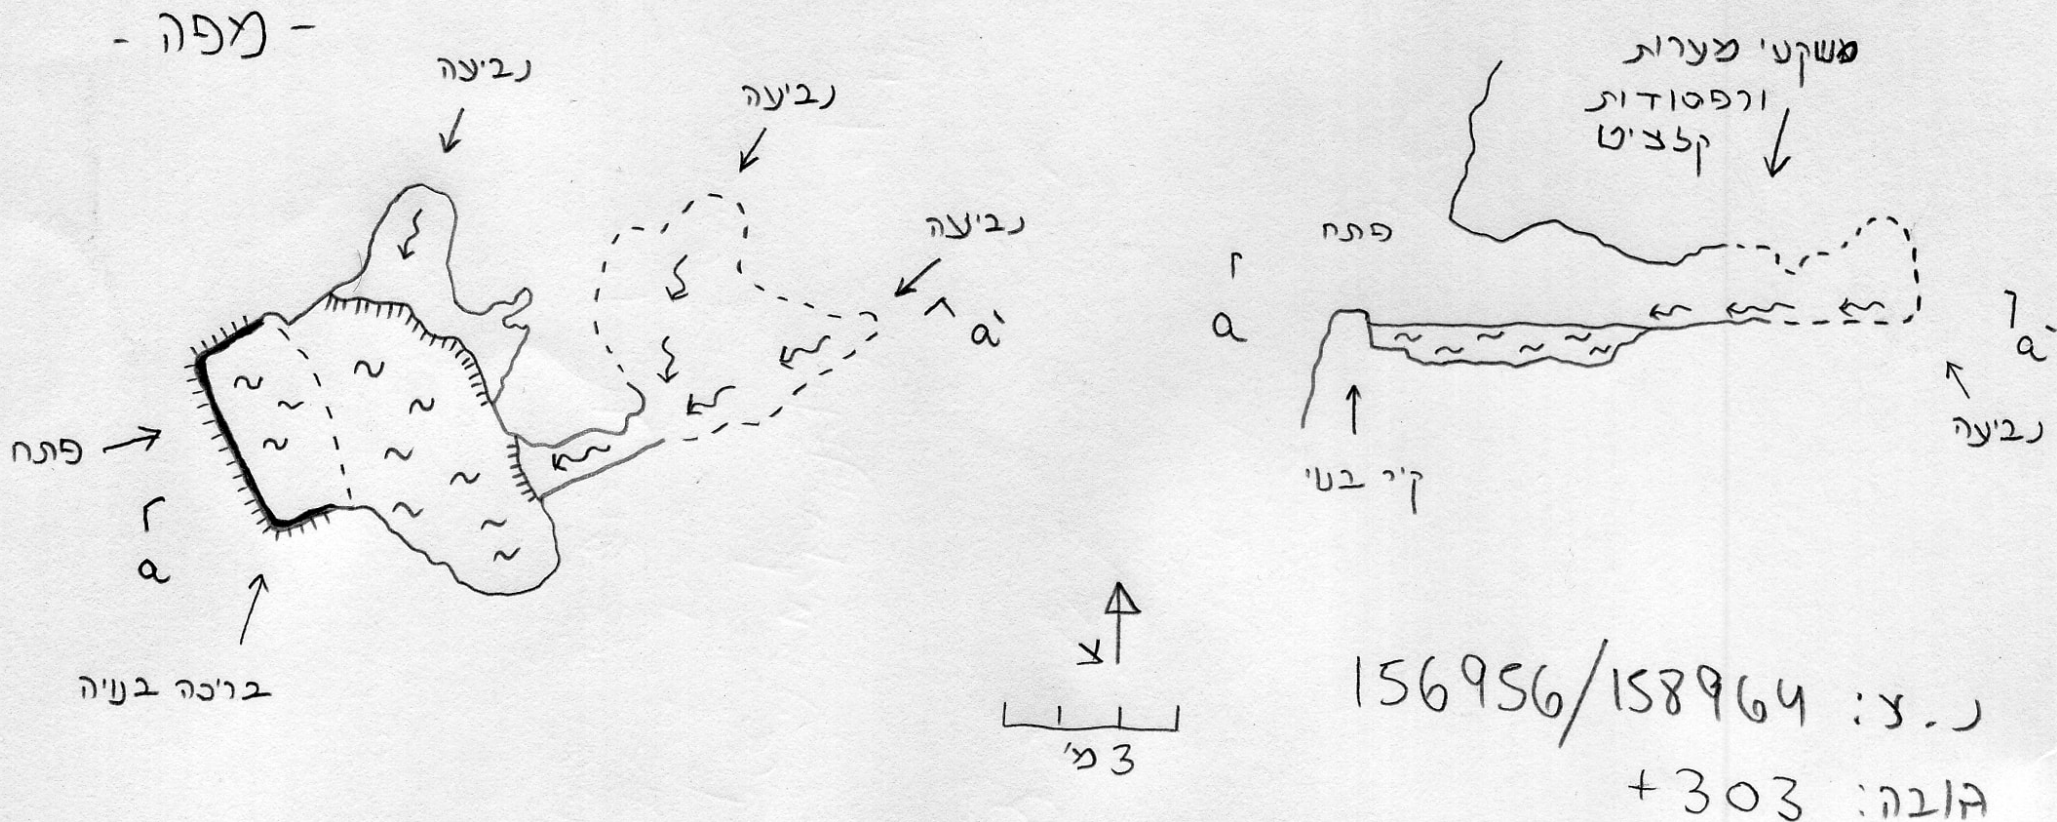 - מפה -
נביעה
נביעה
נביעה
a'
פתח
a
בריכה בנויה
צ
3 מ'
משקעי מערות
ורפסודות
קלציט
פתח
a
a'
נביעה
קיר בנוי
נ.צ: 156956/158964
גובה: 303+